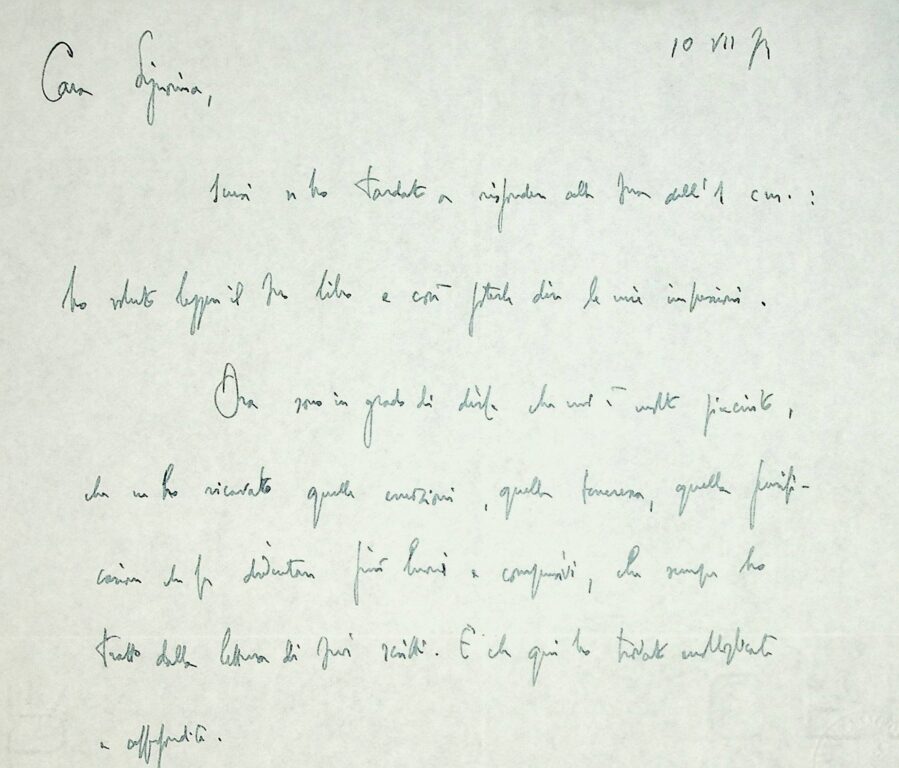 10 VII 71
Cara Signorina,
scusi se ho tardato a rispondere alla Sua dell'1 c.m.:
ho voluto leggere il Suo libro e così poterle dire le mie impressioni.
Ora sono in grado di dirle che mi è molto piaciuto,
che ne ho ricavato quelle emozioni, quella tenerezza, quella purifi-
cazione che fa diventare più buoni e comprensivi, che sempre ho
tratto dalla lettura di Suoi scritti. E che qui ho trovato moltiplicate
e approfondite.